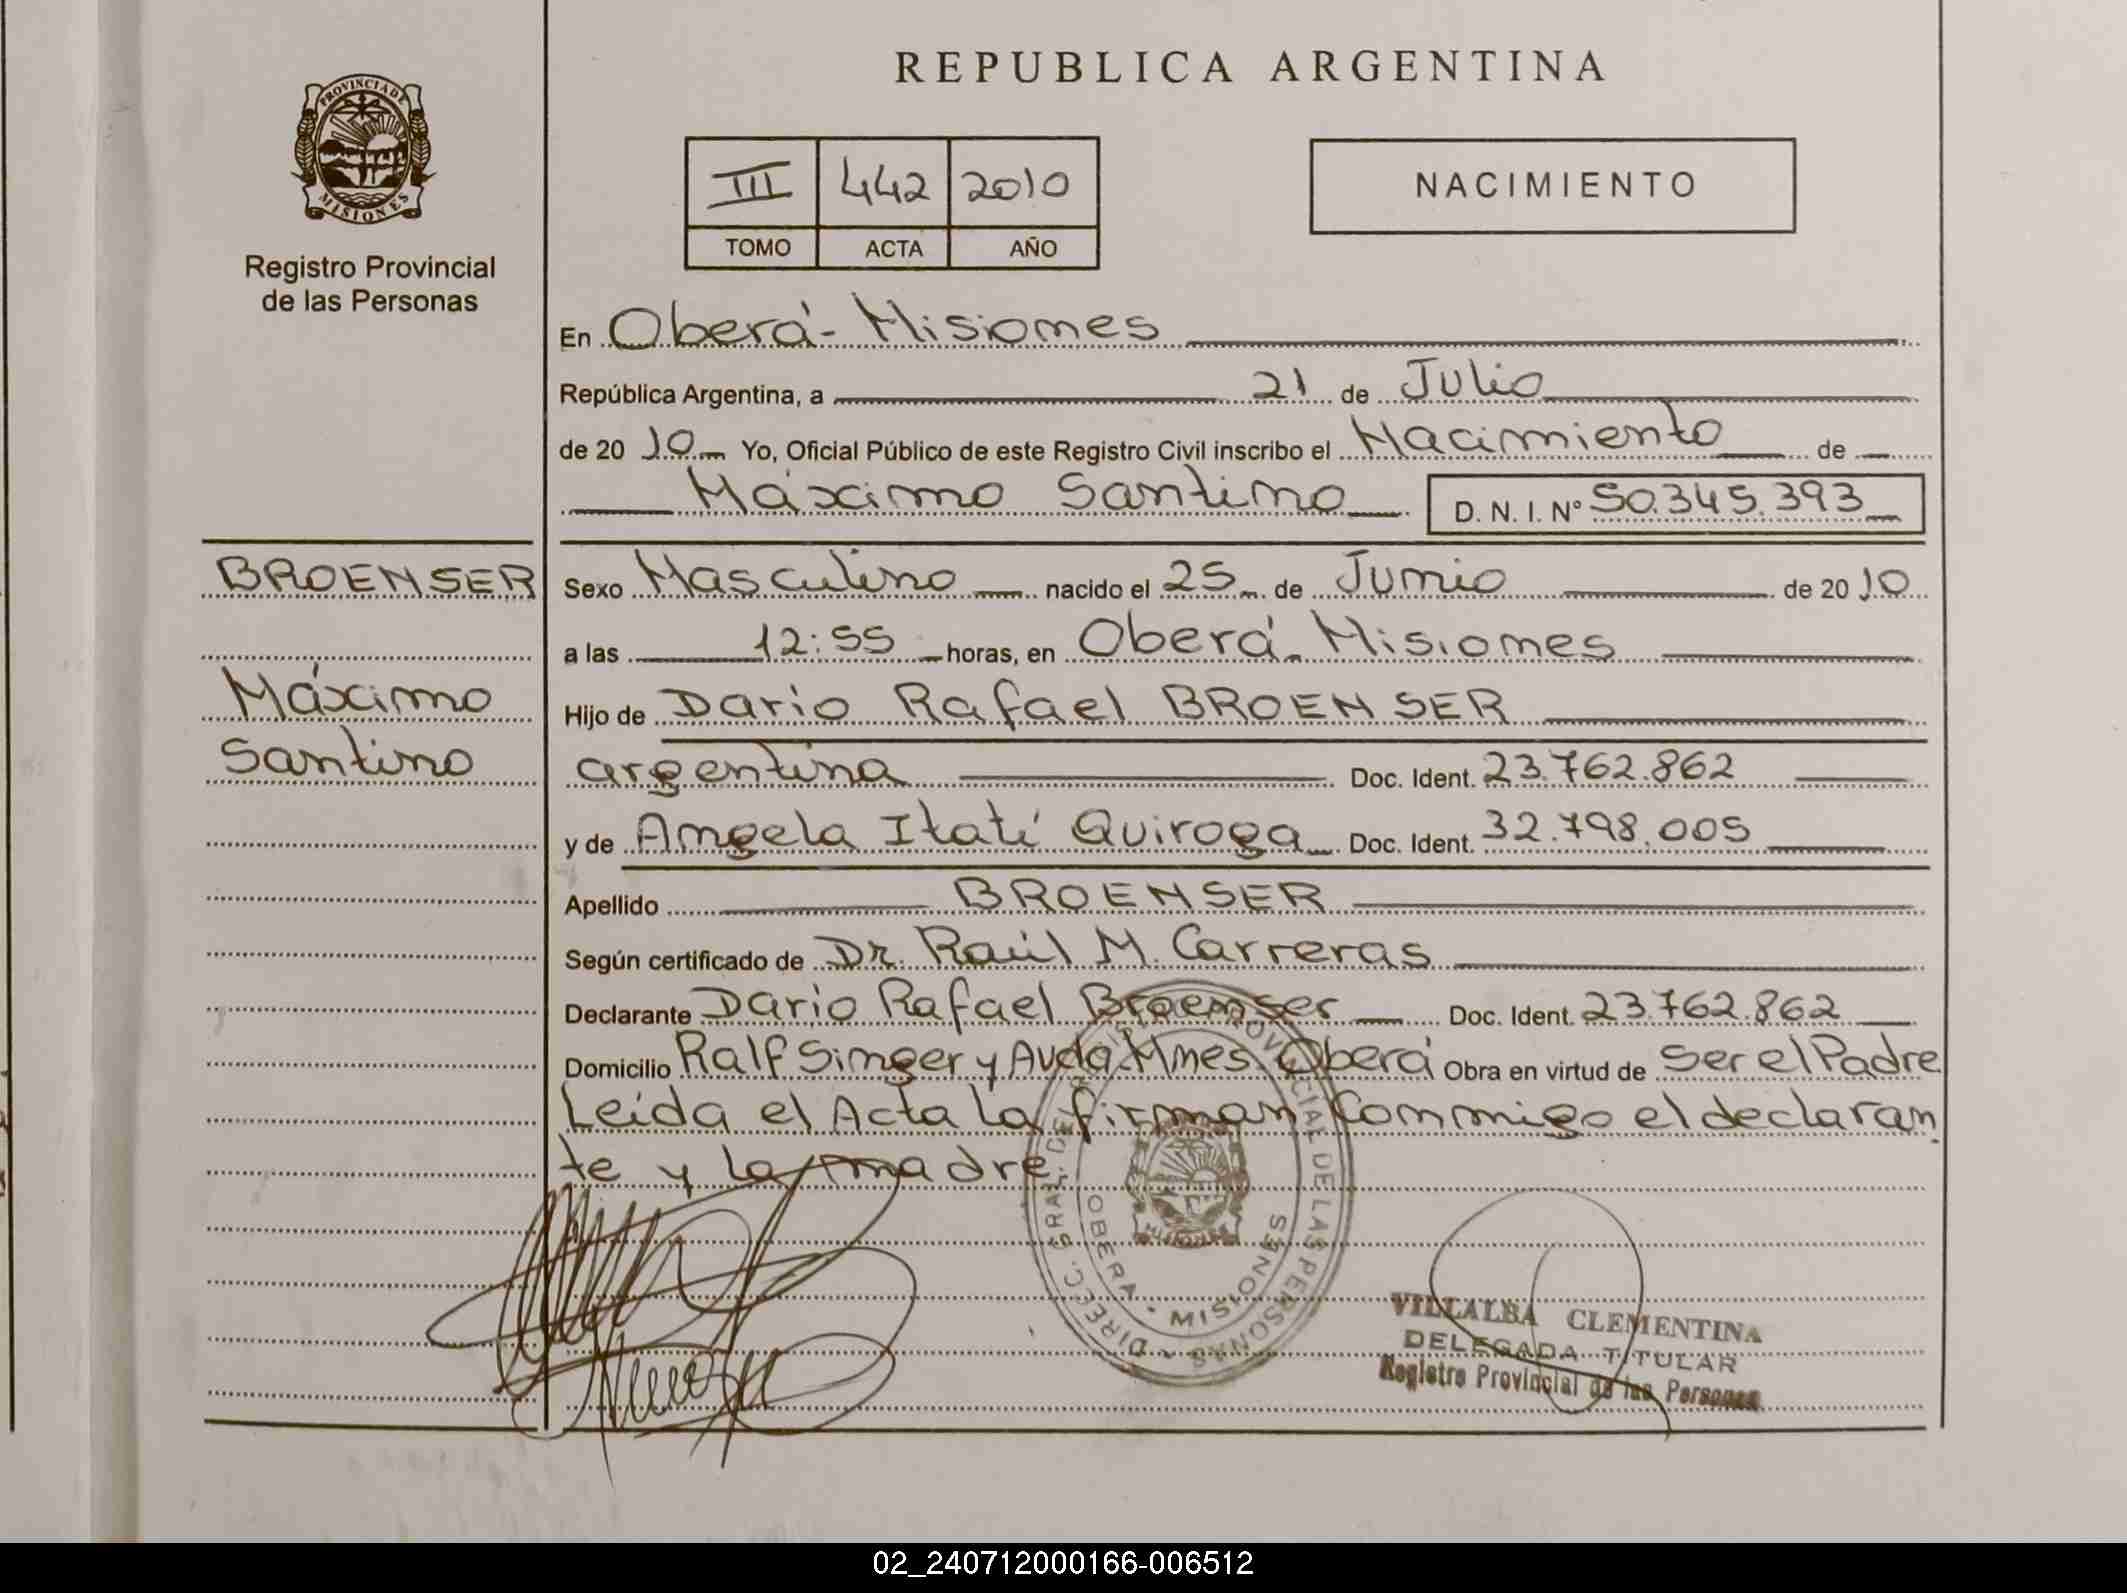 REPUBLICA ARGENTINA
PROVINCIA DE
MISIONES
Registro Provincial
de las Personas
III 442 2010
TOMO ACTA AÑO
NACIMIENTO
En Oberá - Misiones
República Argentina, a 21 de Julio
de 20 10 Yo, Oficial Público de este Registro Civil inscribo el Nacimiento de
Máximo Santino D. N. I. Nº 50.345.393
BROENSER
Máximo
Santino
Sexo Masculino nacido el 25 de Junio de 20 10
a las 12:55 horas, en Oberá - Misiones
Hijo de Dario Rafael BROENSER
argentina Doc. Ident. 23.762.862
y de Angela Itatí Quiroga Doc. Ident. 32.798.005
Apellido BROENSER
Según certificado de Dr. Raúl M. Carreras
Declarante Dario Rafael Broenser Doc. Ident. 23.762.862
Domicilio Ralf Singer y Avda. Mnes. Oberá Obra en virtud de ser el Padre
Leida el Acta la firman conmigo el declaran
te y la madre
DIRECC. GRAL. DEL REGISTRO PROVINCIAL DE LAS PERSONAS
OBERA - MISIONES
MISIONES
VILLALBA CLEMENTINA
DELEGADA TITULAR
Registro Provincial de las Personas
02_240712000166-006512